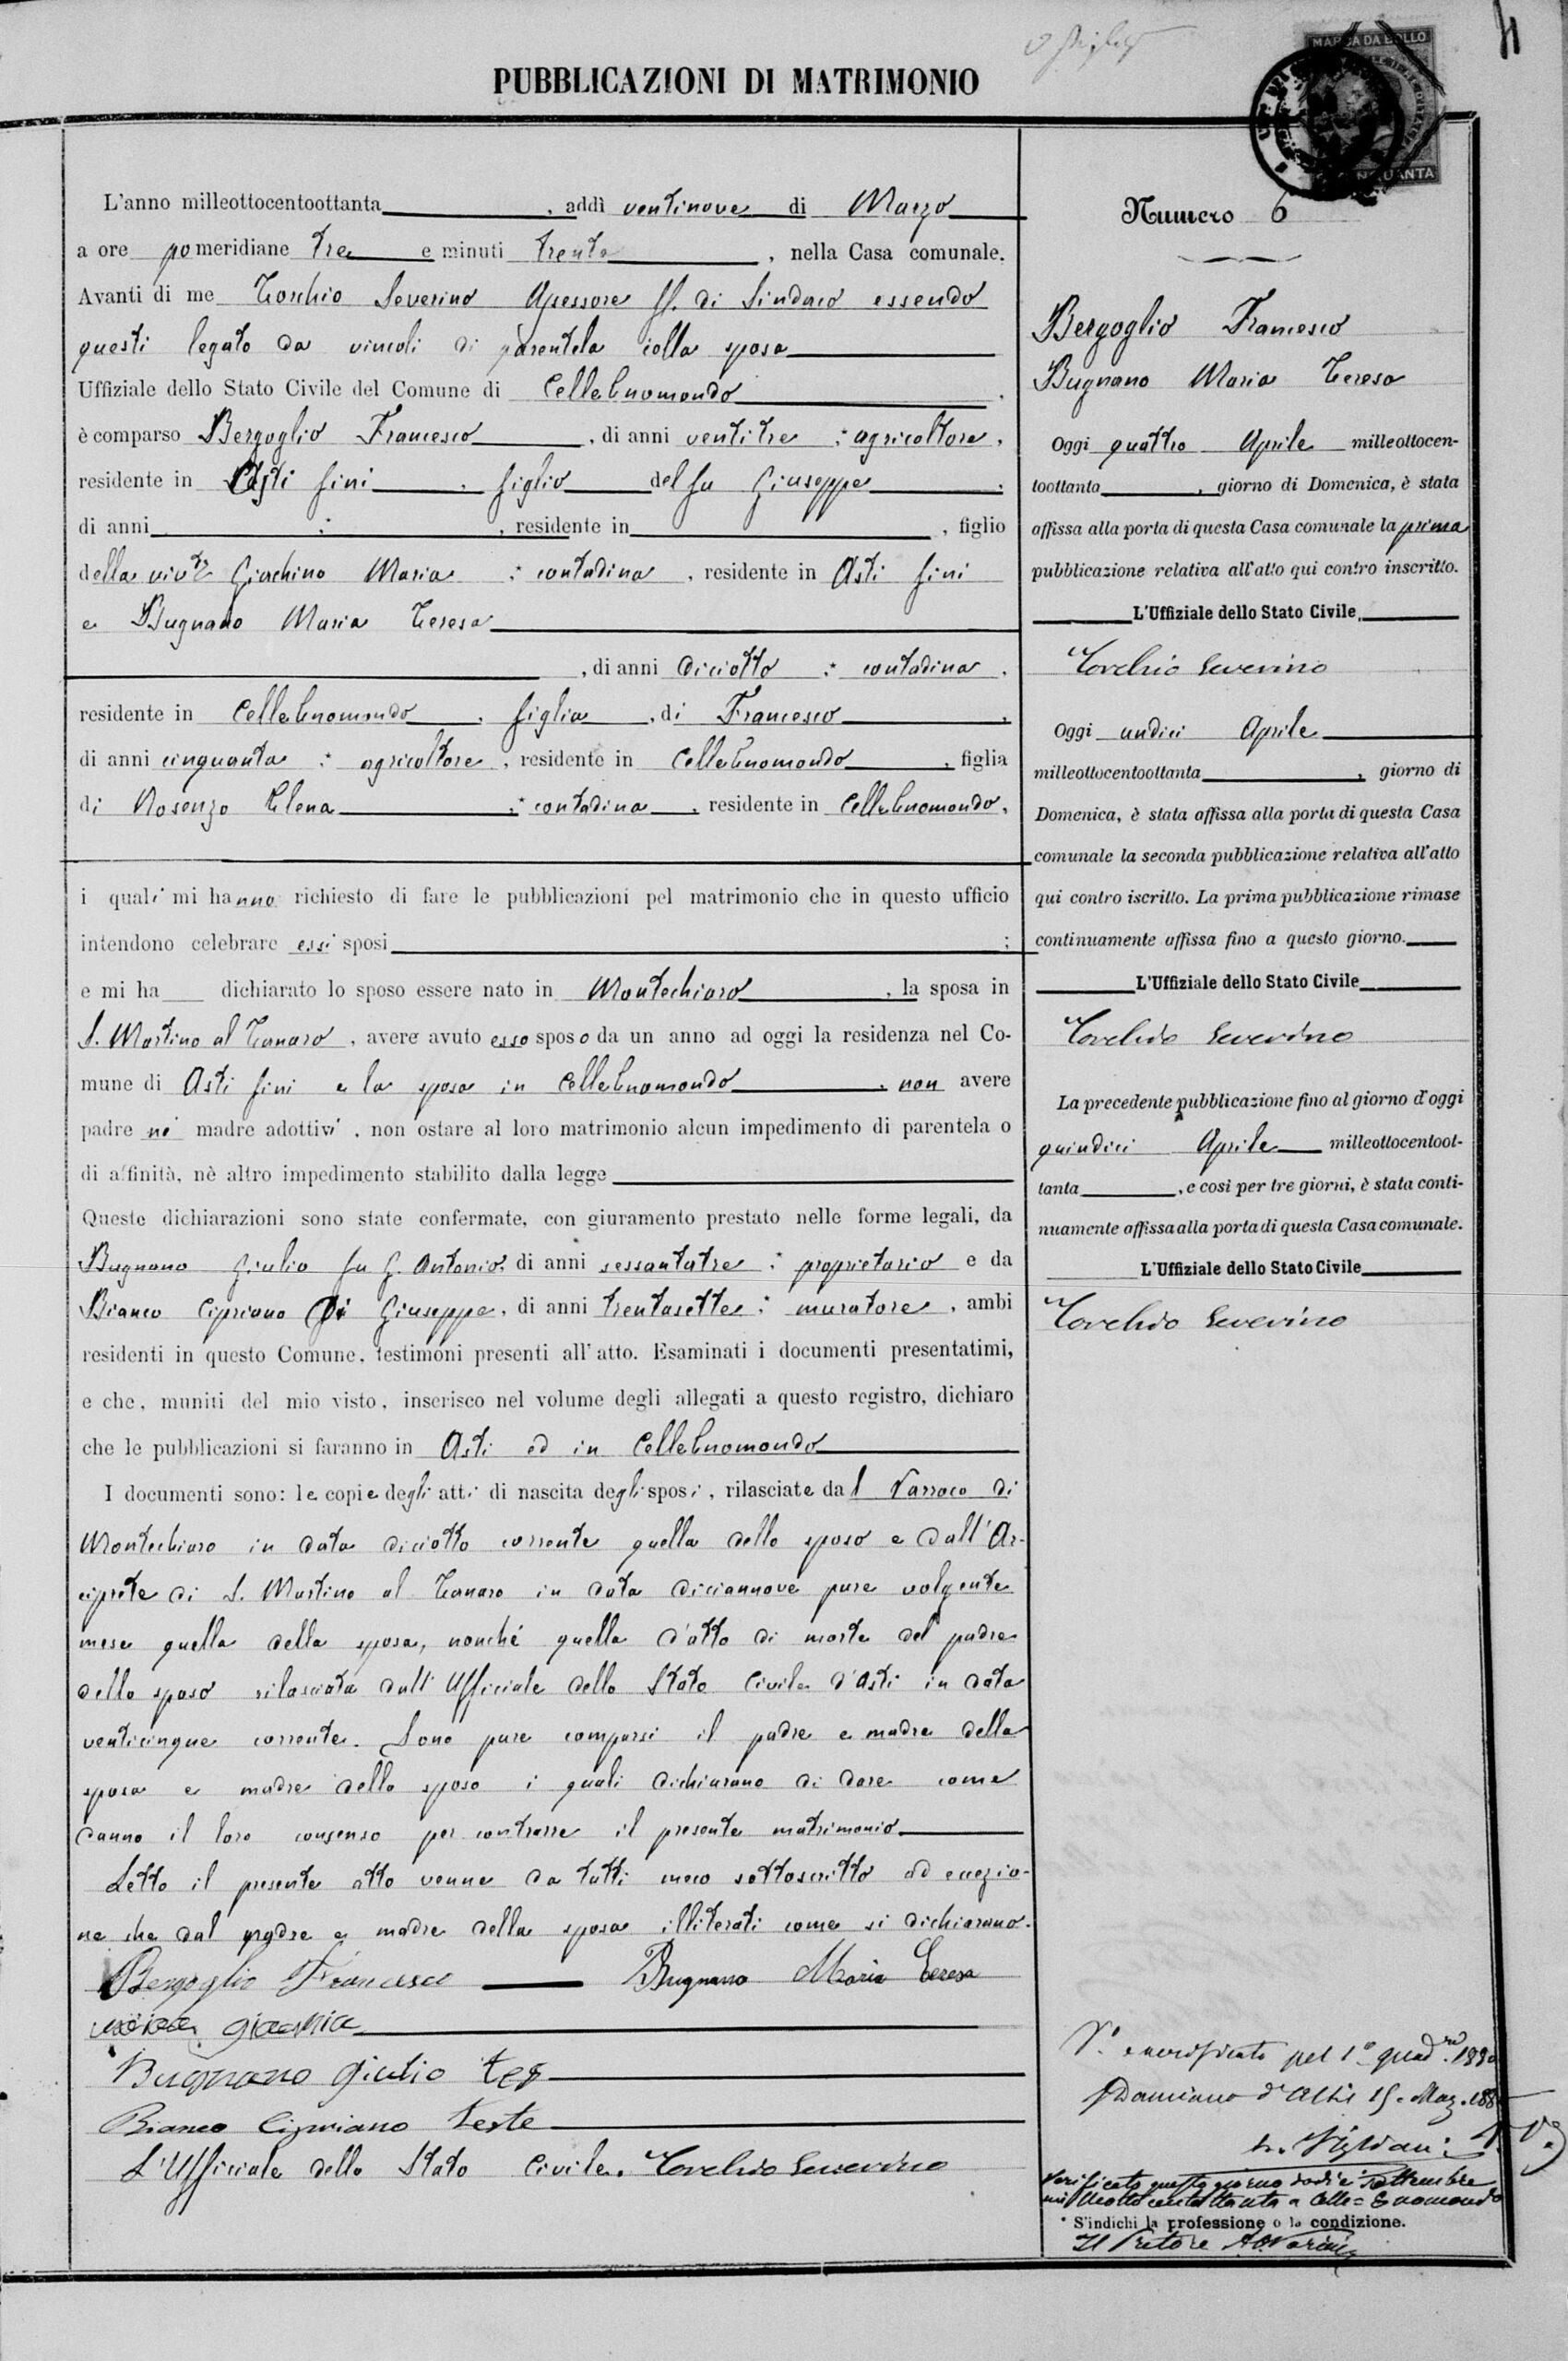 PUBBLICAZIONI DI MATRIMONIO
MARCA DA BOLLO
L'anno milleottocentoottanta, addì ventinove di Marzo
a ore pomeridiane tre e minuti trenta, nella Casa comunale.
Avanti di me Torchio Severino Assessore ff. di Sindaco essendo
questi legato da vincoli di parentela colla sposa
Uffiziale dello Stato Civile del Comune di Celleenomondo
è comparso Bergoglio Francesco, di anni ventitre : * agricoltore,
residente in Asti fini, figlio del fu Giuseppe
di anni : , residente in , figlio
della vivte Giachino Maria : * contadina, residente in Asti fini
e Bugnano Maria Teresa
, di anni diciotto : * contadina,
residente in Celleenomondo, figlia, di Francesco,
di anni cinquanta : * agricoltore, residente in Celleenomondo, figlia
di Rosenzo Elena : * contadina, residente in Celleenomondo,
i quali mi hanno richiesto di fare le pubblicazioni pel matrimonio che in questo ufficio
intendono celebrare essi sposi ;
e mi ha dichiarato lo sposo essere nato in Montechiaro, la sposa in
S. Martino al Tanaro, avere avuto esso sposo da un anno ad oggi la residenza nel Co-
mune di Asti fini e la sposa in Celleenomondo, non avere
padre nè madre adottivi, non ostare al loro matrimonio alcun impedimento di parentela o
di affinità, nè altro impedimento stabilito dalla legge
Queste dichiarazioni sono state confermate, con giuramento prestato nelle forme legali, da
Bugnano Giulio fu G. Antonio, di anni sessantatre : * proprietario e da
Bianco Cipriano Di Giuseppe, di anni trentasette : * muratore, ambi
residenti in questo Comune, testimoni presenti all'atto. Esaminati i documenti presentatimi,
e che, muniti del mio visto, inserisco nel volume degli allegati a questo registro, dichiaro
che le pubblicazioni si faranno in Asti ed in Celleenomondo
I documenti sono: le copie degli atti di nascita degli sposi, rilasciate dal Parroco di
Montechiaro in data diciotto corrente quella dello sposo e dall'Ar-
ciprete di S. Martino al Tanaro in data diciannove pure volgente
mese quella della sposa, nonché quella d'atto di morte del padre
dello sposo rilasciata dall'Ufficiale dello Stato Civile d'Asti in data
venticinque corrente. Sono pure comparsi il padre e madre della
sposa e madre dello sposo i quali dichiarano di dare come
danno il loro consenso per contrarre il presente matrimonio
Letto il presente atto venne da tutti meco sottoscritto ad eccezio-
ne che dal padre e madre della sposa illiterati come si dichiarano.
Bergoglio Francesco Bugnano Maria Teresa
Bugnano Giulio tes
Bianco Cipriano teste
L'Ufficiale dello Stato Civile. Torchio Severino
Numero 6
Bergoglio Francesco
Bugnano Maria Teresa
Oggi quattro Aprile milleottocen-
toottanta, giorno di Domenica, è stata
affissa alla porta di questa Casa comunale la prima
pubblicazione relativa all'atto qui contro inscritto.
L'Uffiziale dello Stato Civile
Torchio Severino
Oggi undici Aprile
milleottocentoottanta, giorno di
Domenica, è stata affissa alla porta di questa Casa
comunale la seconda pubblicazione relativa all'atto
qui contro iscritto. La prima pubblicazione rimase
continuamente affissa fino a questo giorno.
L'Uffiziale dello Stato Civile
Torchio Severino
La precedente pubblicazione fino al giorno d'oggi
quindici Aprile milleottocentoot-
tanta, e così per tre giorni, è stata conti-
nuamente affissa alla porta di questa Casa comunale.
L'Uffiziale dello Stato Civile
Torchio Severino
pel 1° 1880
Verificato questo giorno dodici settembre
milleottocentottanta a Celle=Enomondo
* S'indichi la professione o la condizione.
Il Pretore